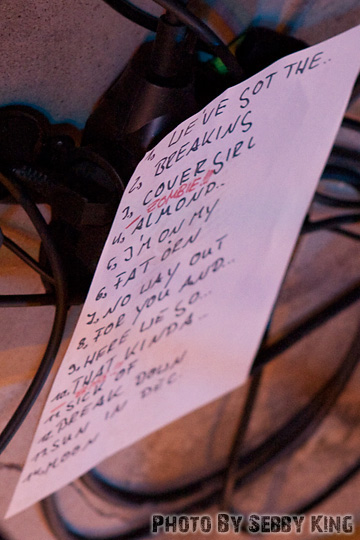 1. WE'VE GOT THE..
2. BREAKING
3. COVERGIRL
ZOMBIE!!!
4. ALMOND..
5. I'M ON MY
6. FAT ORN
7. NO WAY OUT
8. FOR YOU AND...
9. HERE WE SO...
10. THAT KINDA..
11. SICK OF
12. BREAK DOWN
13. SUN IN DEC
14. MOON
PHOTO BY SEBBY KING